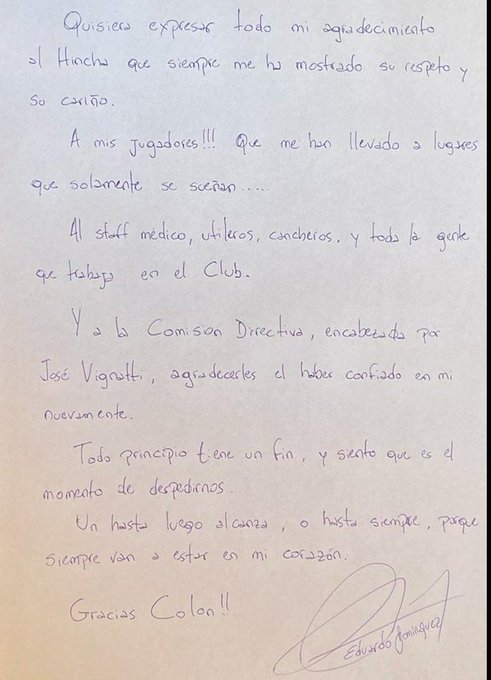 Quisiera expresar todo mi agradecimiento
al Hincha que siempre me ha mostrado su respeto y
su cariño.
A mis jugadores!!! Que me han llevado a lugares
que solamente se sueñan.....
Al staff medico, utileros, cancheros, y toda la gente
que trabaja en el Club.
Y a la Comision Directiva, encabezada por
José Vignatti, agradecerles el haber confiado en mi
nuevamente.
Todo principio tiene un fin, y siento que es el
momento de despedirnos.
Un hasta luego alcanza, o hasta siempre, porque
siempre van a estar en mi corazón.
Gracias Colon!!
Eduardo Dominguez